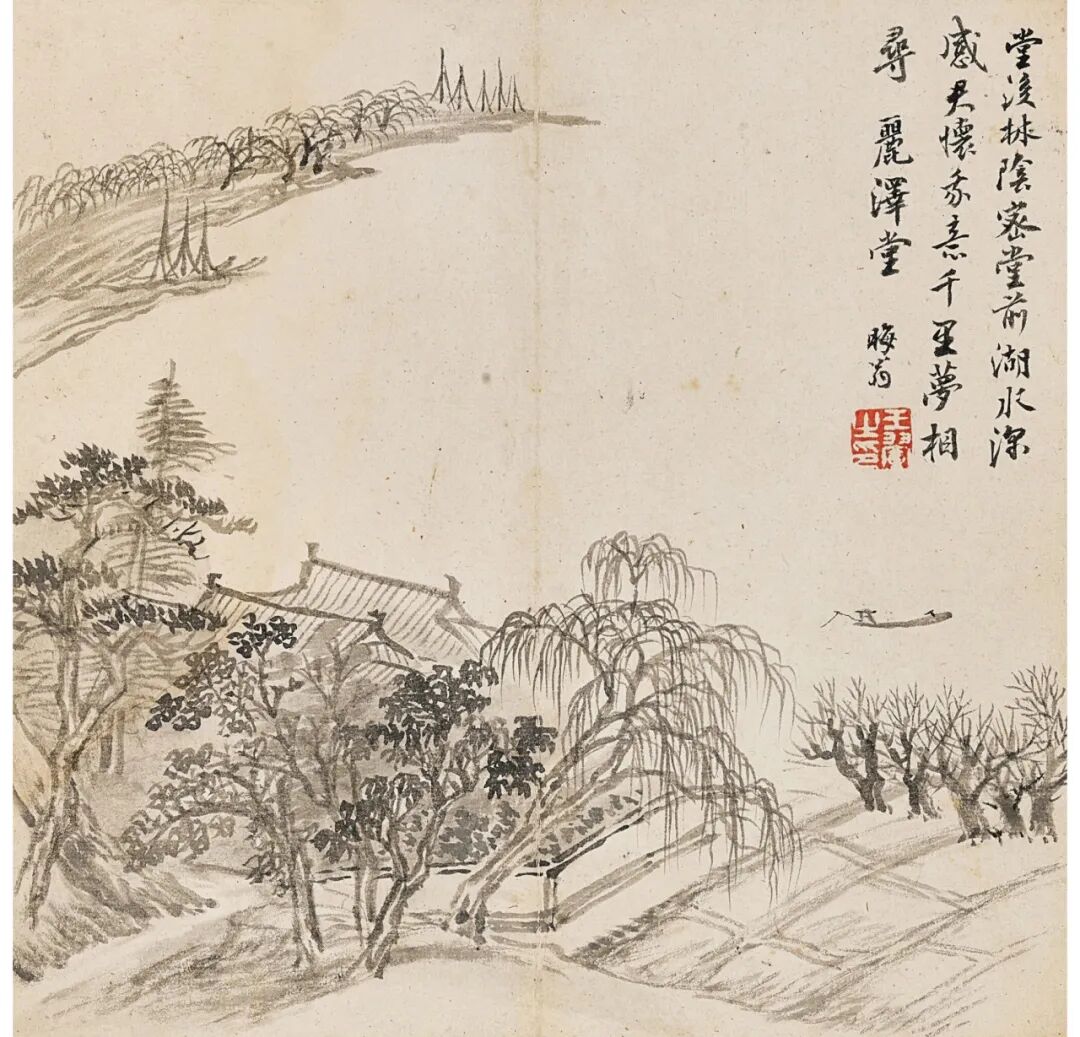 堂後林陰密堂前湖水深
感君懷我意千里夢相
尋 麗澤堂 晦翁
王翬之印